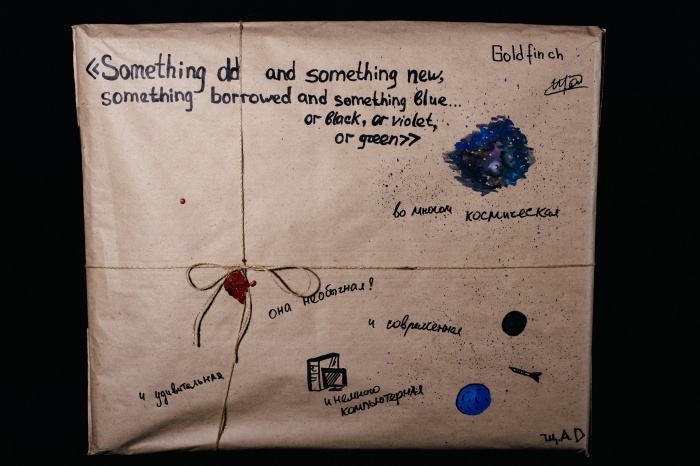 Goldfinch
«Something old and something new,
something borrowed and something blue...
or black, or violet,
or green»
во многом космическая
она необычная!
и современная
и удивительная
и немного
компьютерная
щ.А.D